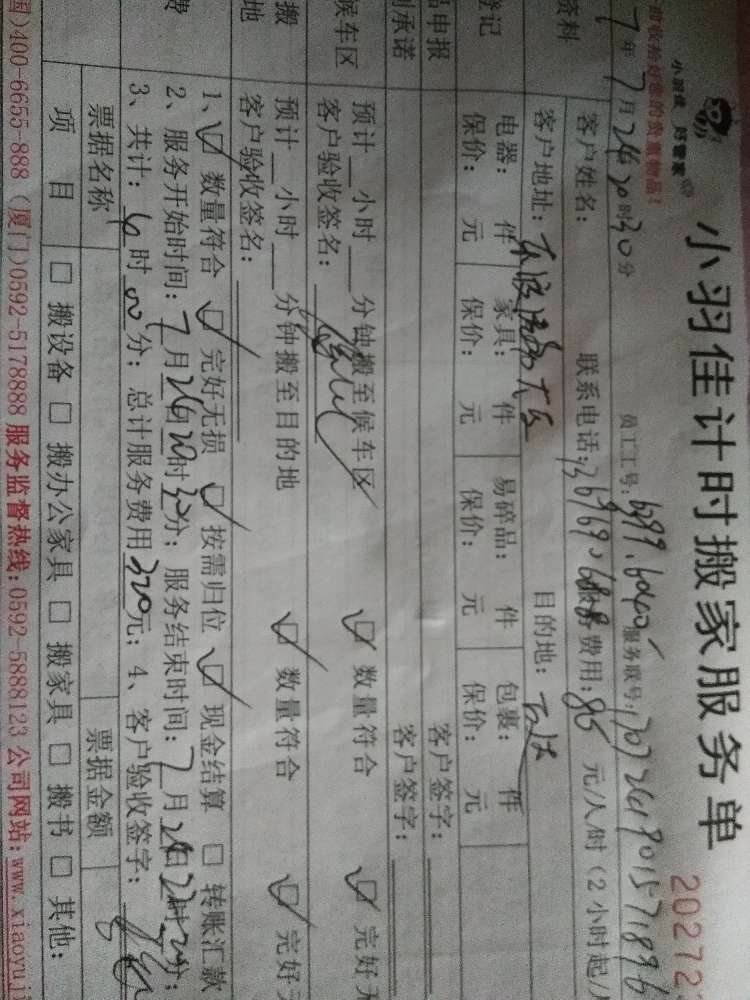 小羽佳 好管家
前收拾好您的贵重物品！
小羽佳计时搬家服务单
20272
7年7月26 20时30分
员工工号：
服务联号：
资料
客户姓名：
联系电话：
服务费用：85 元/人/时（2小时起/
客户地址：
目的地：
登记
电器： 件 家具： 件 易碎品： 件 包裹： 件
保价： 元 保价： 元 保价： 元 保价： 元
品申报
客户签字：
则承诺
客户签字：
候车区
预计__小时__分钟搬至候车区 ☑数量符合 ☑完好无
客户验收签名：
搬
地
预计__小时__分钟搬至目的地 ☑数量符合 ☑完好无
客户验收签名：
费
1、☑数量符合 ☑完好无损 ☑按需归位 ☑现金结算 □转账汇款
2、服务开始时间：7月26日20时30分；服务结束时间：7月26日22时20分；
3、共计：时分；总计服务费用320元；4、客户验收签字：
票据名称 票据金额
项 目 □搬设备 □搬办公家具 □搬家具 □搬书 □其他：
国)400-6655-888 (厦门)0592-5178888 服务监督热线：0592-5888123 公司网站：www.xiaoyuji